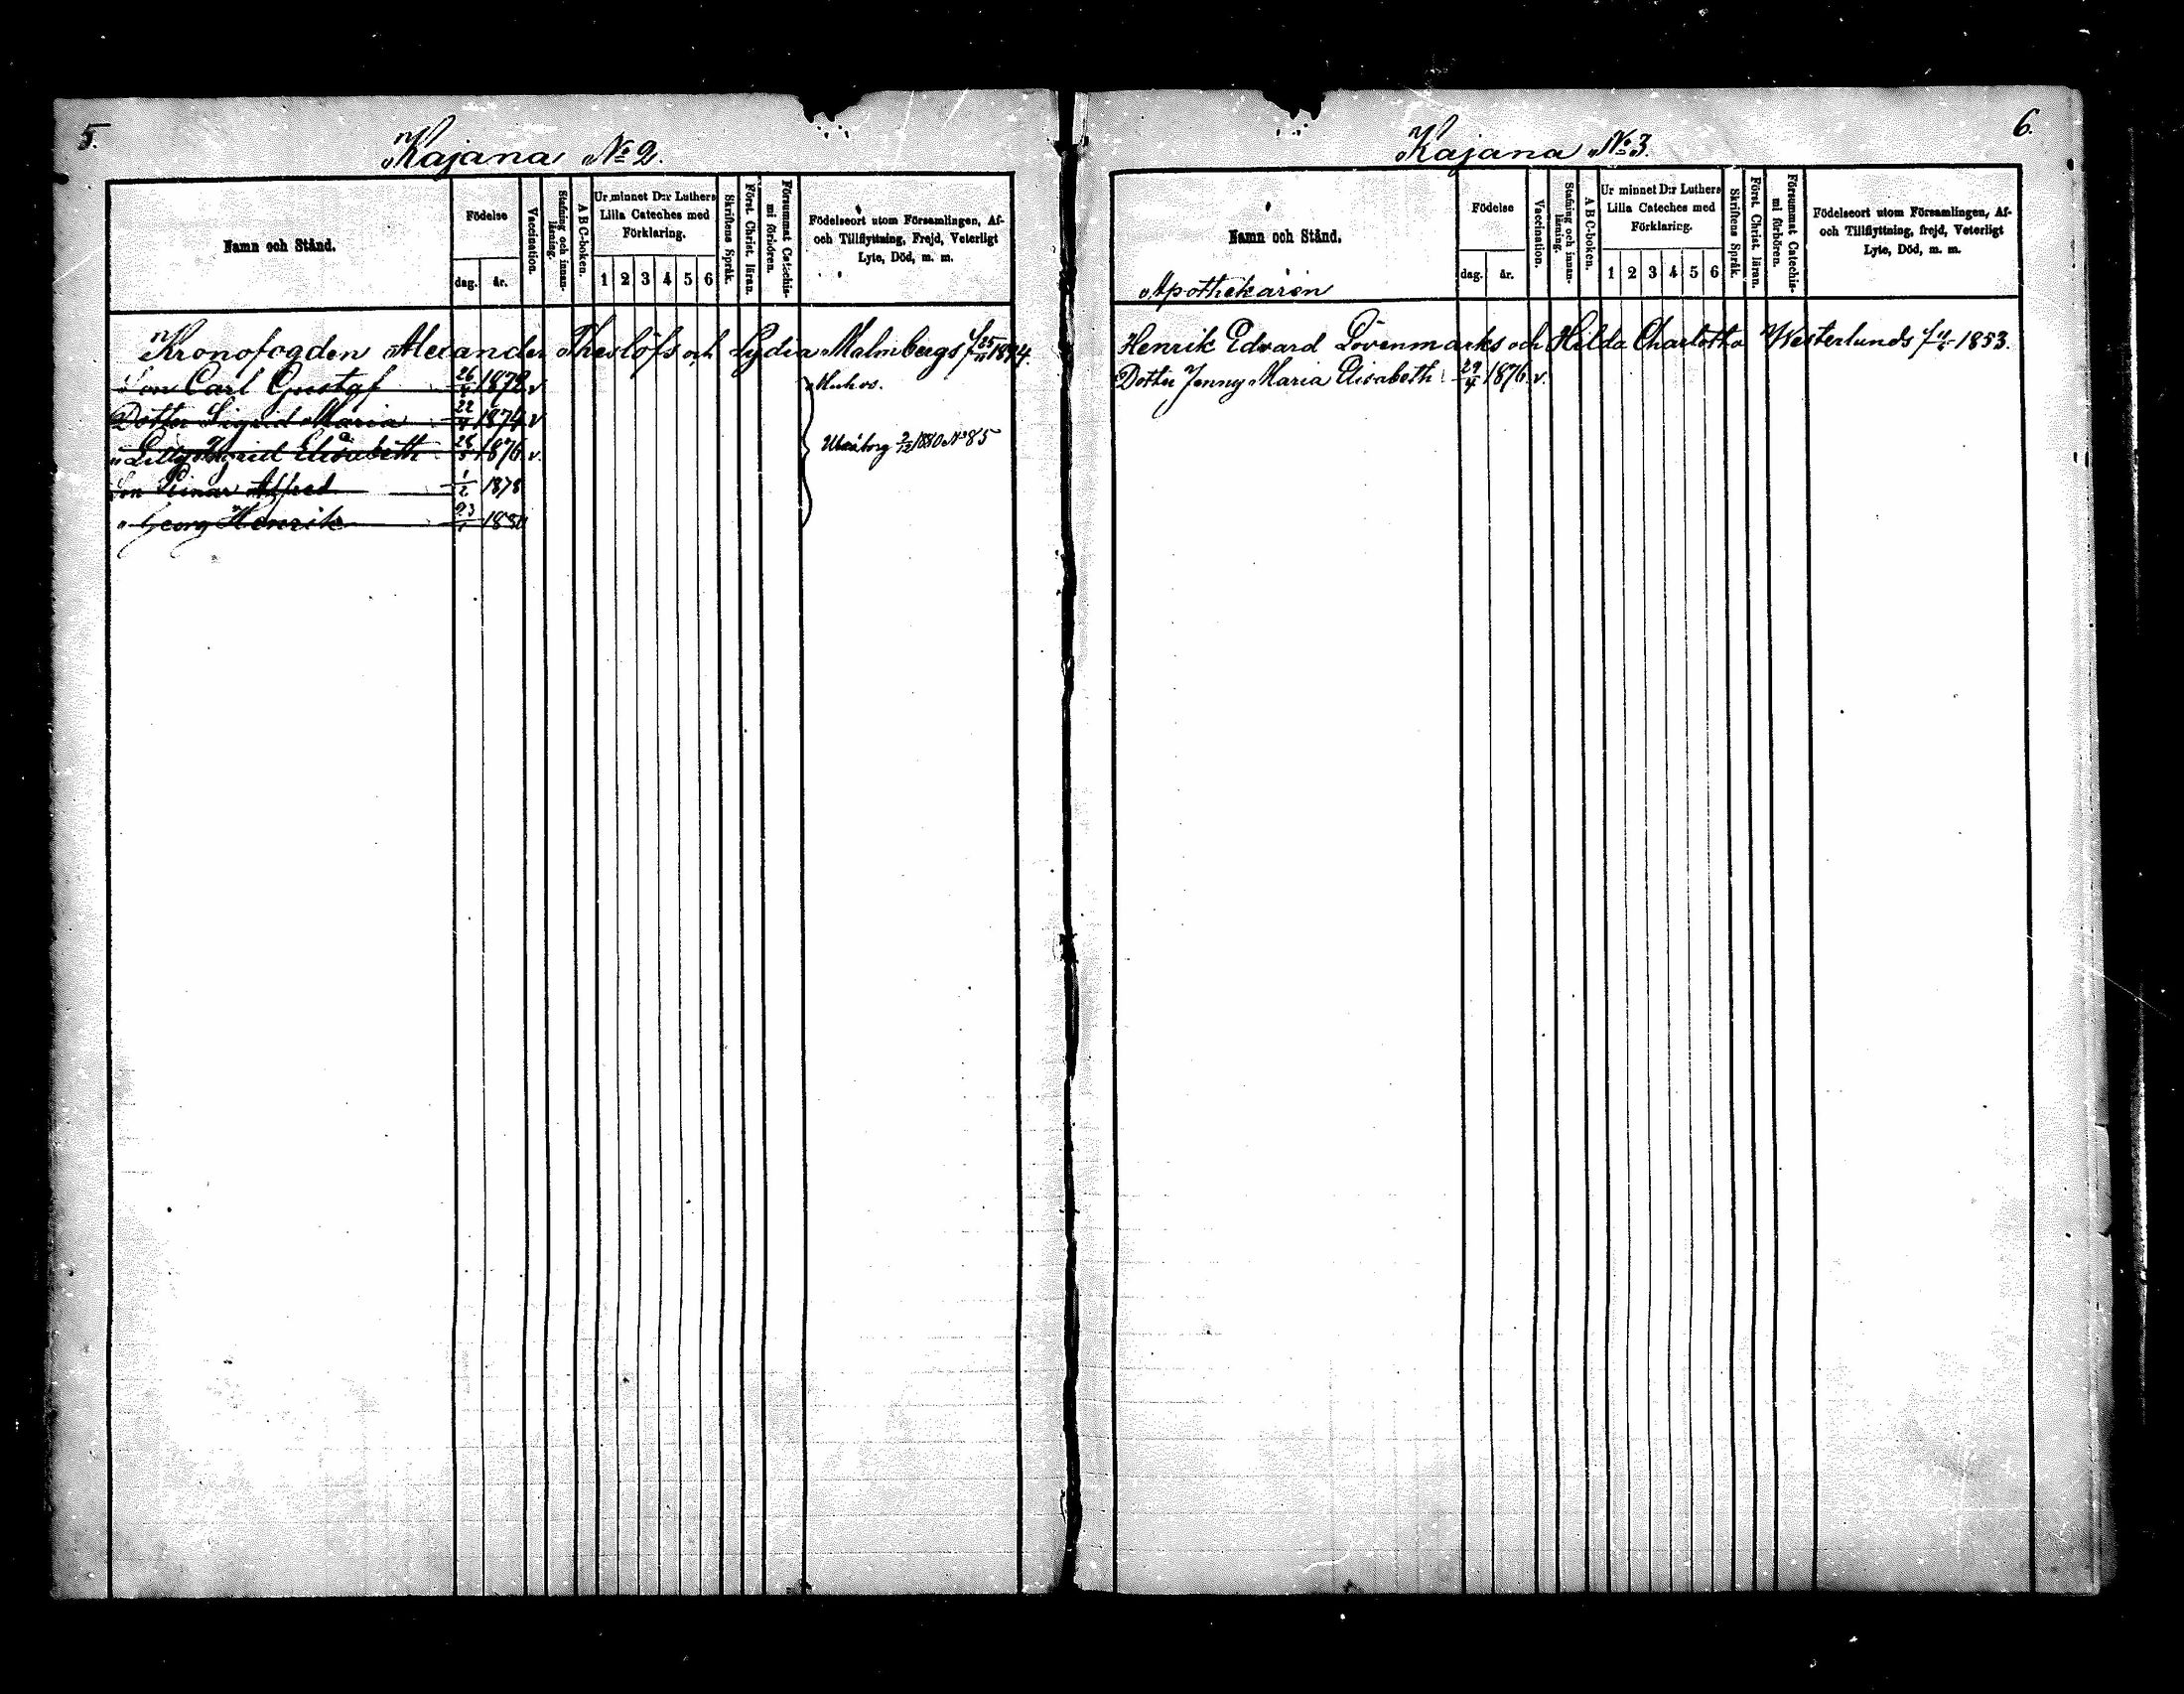 5.
Kajana No 2.
Namn och Stånd.
Födelse
dag. år.
Vaccination.
Stafning och innan-läsning.
A B C-boken.
Ur minnet D:r Luthers
Lilla Cateches med
Förklaring.
1 2 3 4 5 6
Skriftens Språk.
Först. Christ. läran.
Försummat Catechis-mi förhören.
Födelseort utom Församlingen, Af-
och Tillflyttning, Frejd, Veterligt
Lyte, Död, m. m.
Kronofogden Alexander Theslöfs och Lydia Malmbergs f 25
Son Carl Gustaf 26 1872 v Muhos.
Dotter Sigrid Maria 22/4 1874 v
" Lilly Elisabeth 1876 v.
Uleåborg 2/12 1880 No 85
Son Einar Alfred 1/2 1878
" Georg Henrik 23/1 1880
6.
Kajana No 3.
Namn och Stånd.
Födelse
dag. år.
Vaccination.
Stafning och innan-läsning.
A B C-boken.
Ur minnet D:r Luthers
Lilla Cateches med
Förklaring.
1 2 3 4 5 6
Skriftens Språk.
Först. Christ. läran.
Försummat Catechis-mi förhören.
Födelseort utom Församlingen, Af-
och Tillflyttning, frejd, Veterligt
Lyte, Död, m. m.
Apothekaren
Henrik Edvard Lövenmarks och Hilda Charlotta Westerlunds f 1853.
Dotter Jenny Maria Elisabeth 29/4 1876 v.